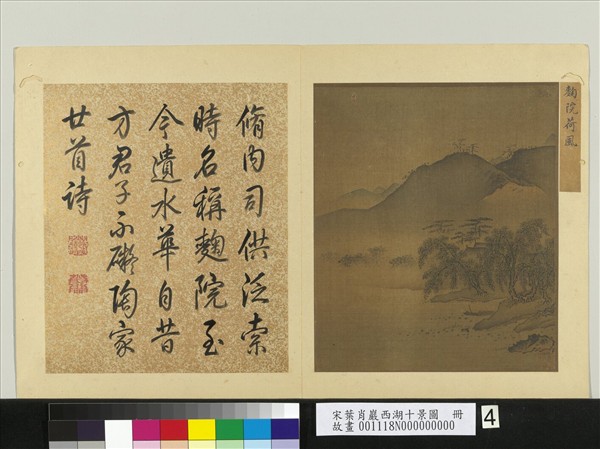 麴院荷風
脩內司供泛索
時名稱麴院至
今遺水華自昔
方君子不礙陶家
廿首詩
宋葉肖巖西湖十景圖 冊
故畫 001118N000000000
4